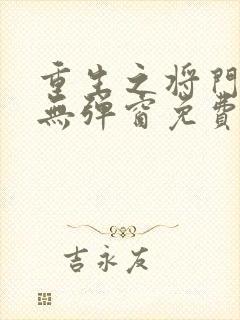 重生之将門
無弹窗免費
吉永友